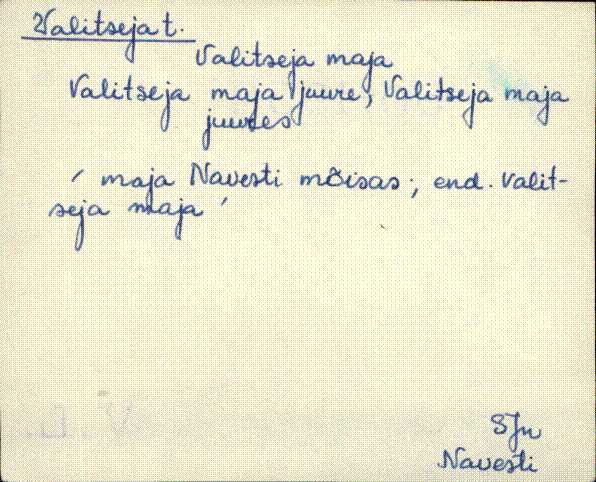 Valitseja t.
Valitseja maja
Valitseja maja juure, Valitseja maja
juures
' maja Navesti mõisas; end. Valit-
seja maja '
SJn
Navesti